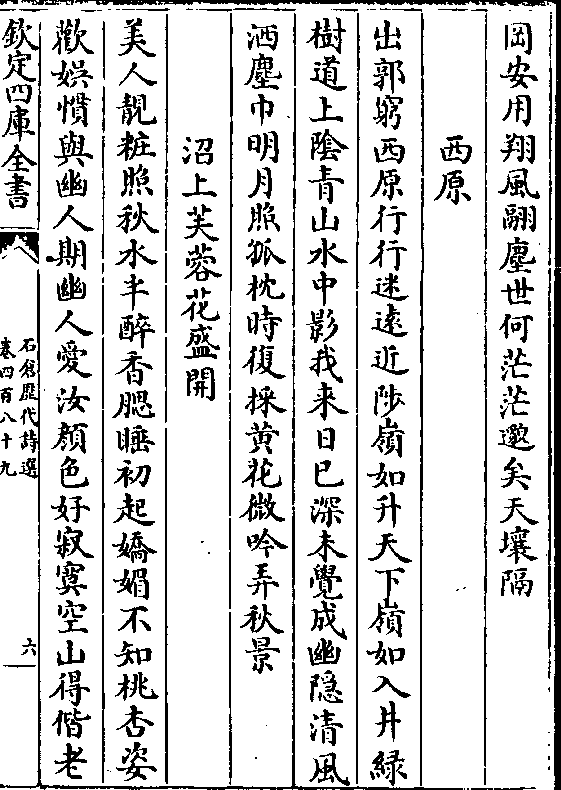 岡安用翔風翮塵世何茫茫邈矣天壤隔
西原
出郭窮西原行行迷逺近陟嶺如升天下嶺如入井緑
樹道上隂青山水中影我来日已深未覺成幽隠清風
洒塵巾明月照孤枕時復採黄花微吟弄秋景
沼上芙蓉花盛開
美人靚粧照秋水半醉香腮睡初起嬌媚不知桃杏姿
歡娯慣與幽人期幽人愛汝顔色好寂寞空山得偕老
欽定四庫全書
石倉歴代詩選
卷四百八十九
六